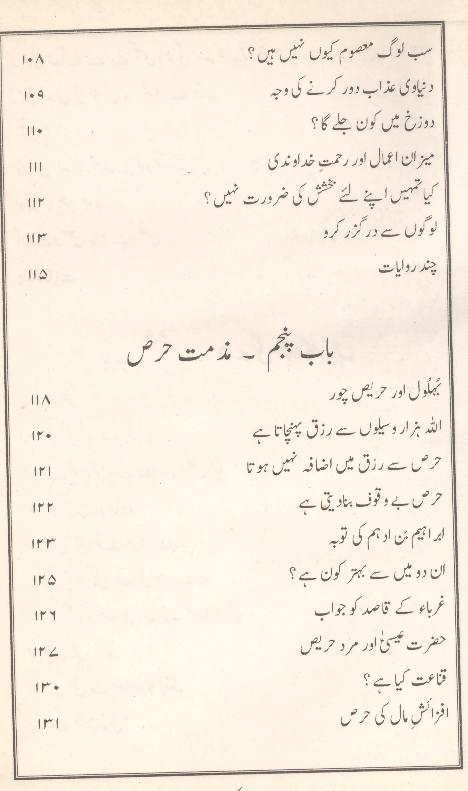 سب لوگ معصوم کیوں نہیں ہیں؟ ۱۰۸
دنیاوی عذاب دور کرنے کی وجہ ۱۰۹
دوزخ میں کون جلے گا؟ ۱۱۰
میزان اعمال اور رحمتِ خداوندی ۱۱۱
کیا تمہیں اپنے لئے بخشش کی ضرورت نہیں؟ ۱۱۲
لوگوں سے درگزر کرو ۱۱۳
چند روایات ۱۱۵
باب پنجم ۔ مذمت حرص
بُہلُول اور حریص چور ۱۱۸
اللہ ہزار وسیلوں سے رزق پہنچاتا ہے ۱۲۰
حرص سے رزق میں اضافہ نہیں ہوتا ۱۲۱
حرص بے وقوف بنا دیتی ہے ۱۲۲
ابراہیم بن ادہم کی توبہ ۱۲۳
ان دو میں سے بہتر کون ہے؟ ۱۲۵
غرباء کے قاصد کو جواب ۱۲۶
حضرت عیسیٰؑ اور مرد حریص ۱۲۷
قناعت کیا ہے؟ ۱۳۰
افزائشِ مال کی حرص ۱۳۱